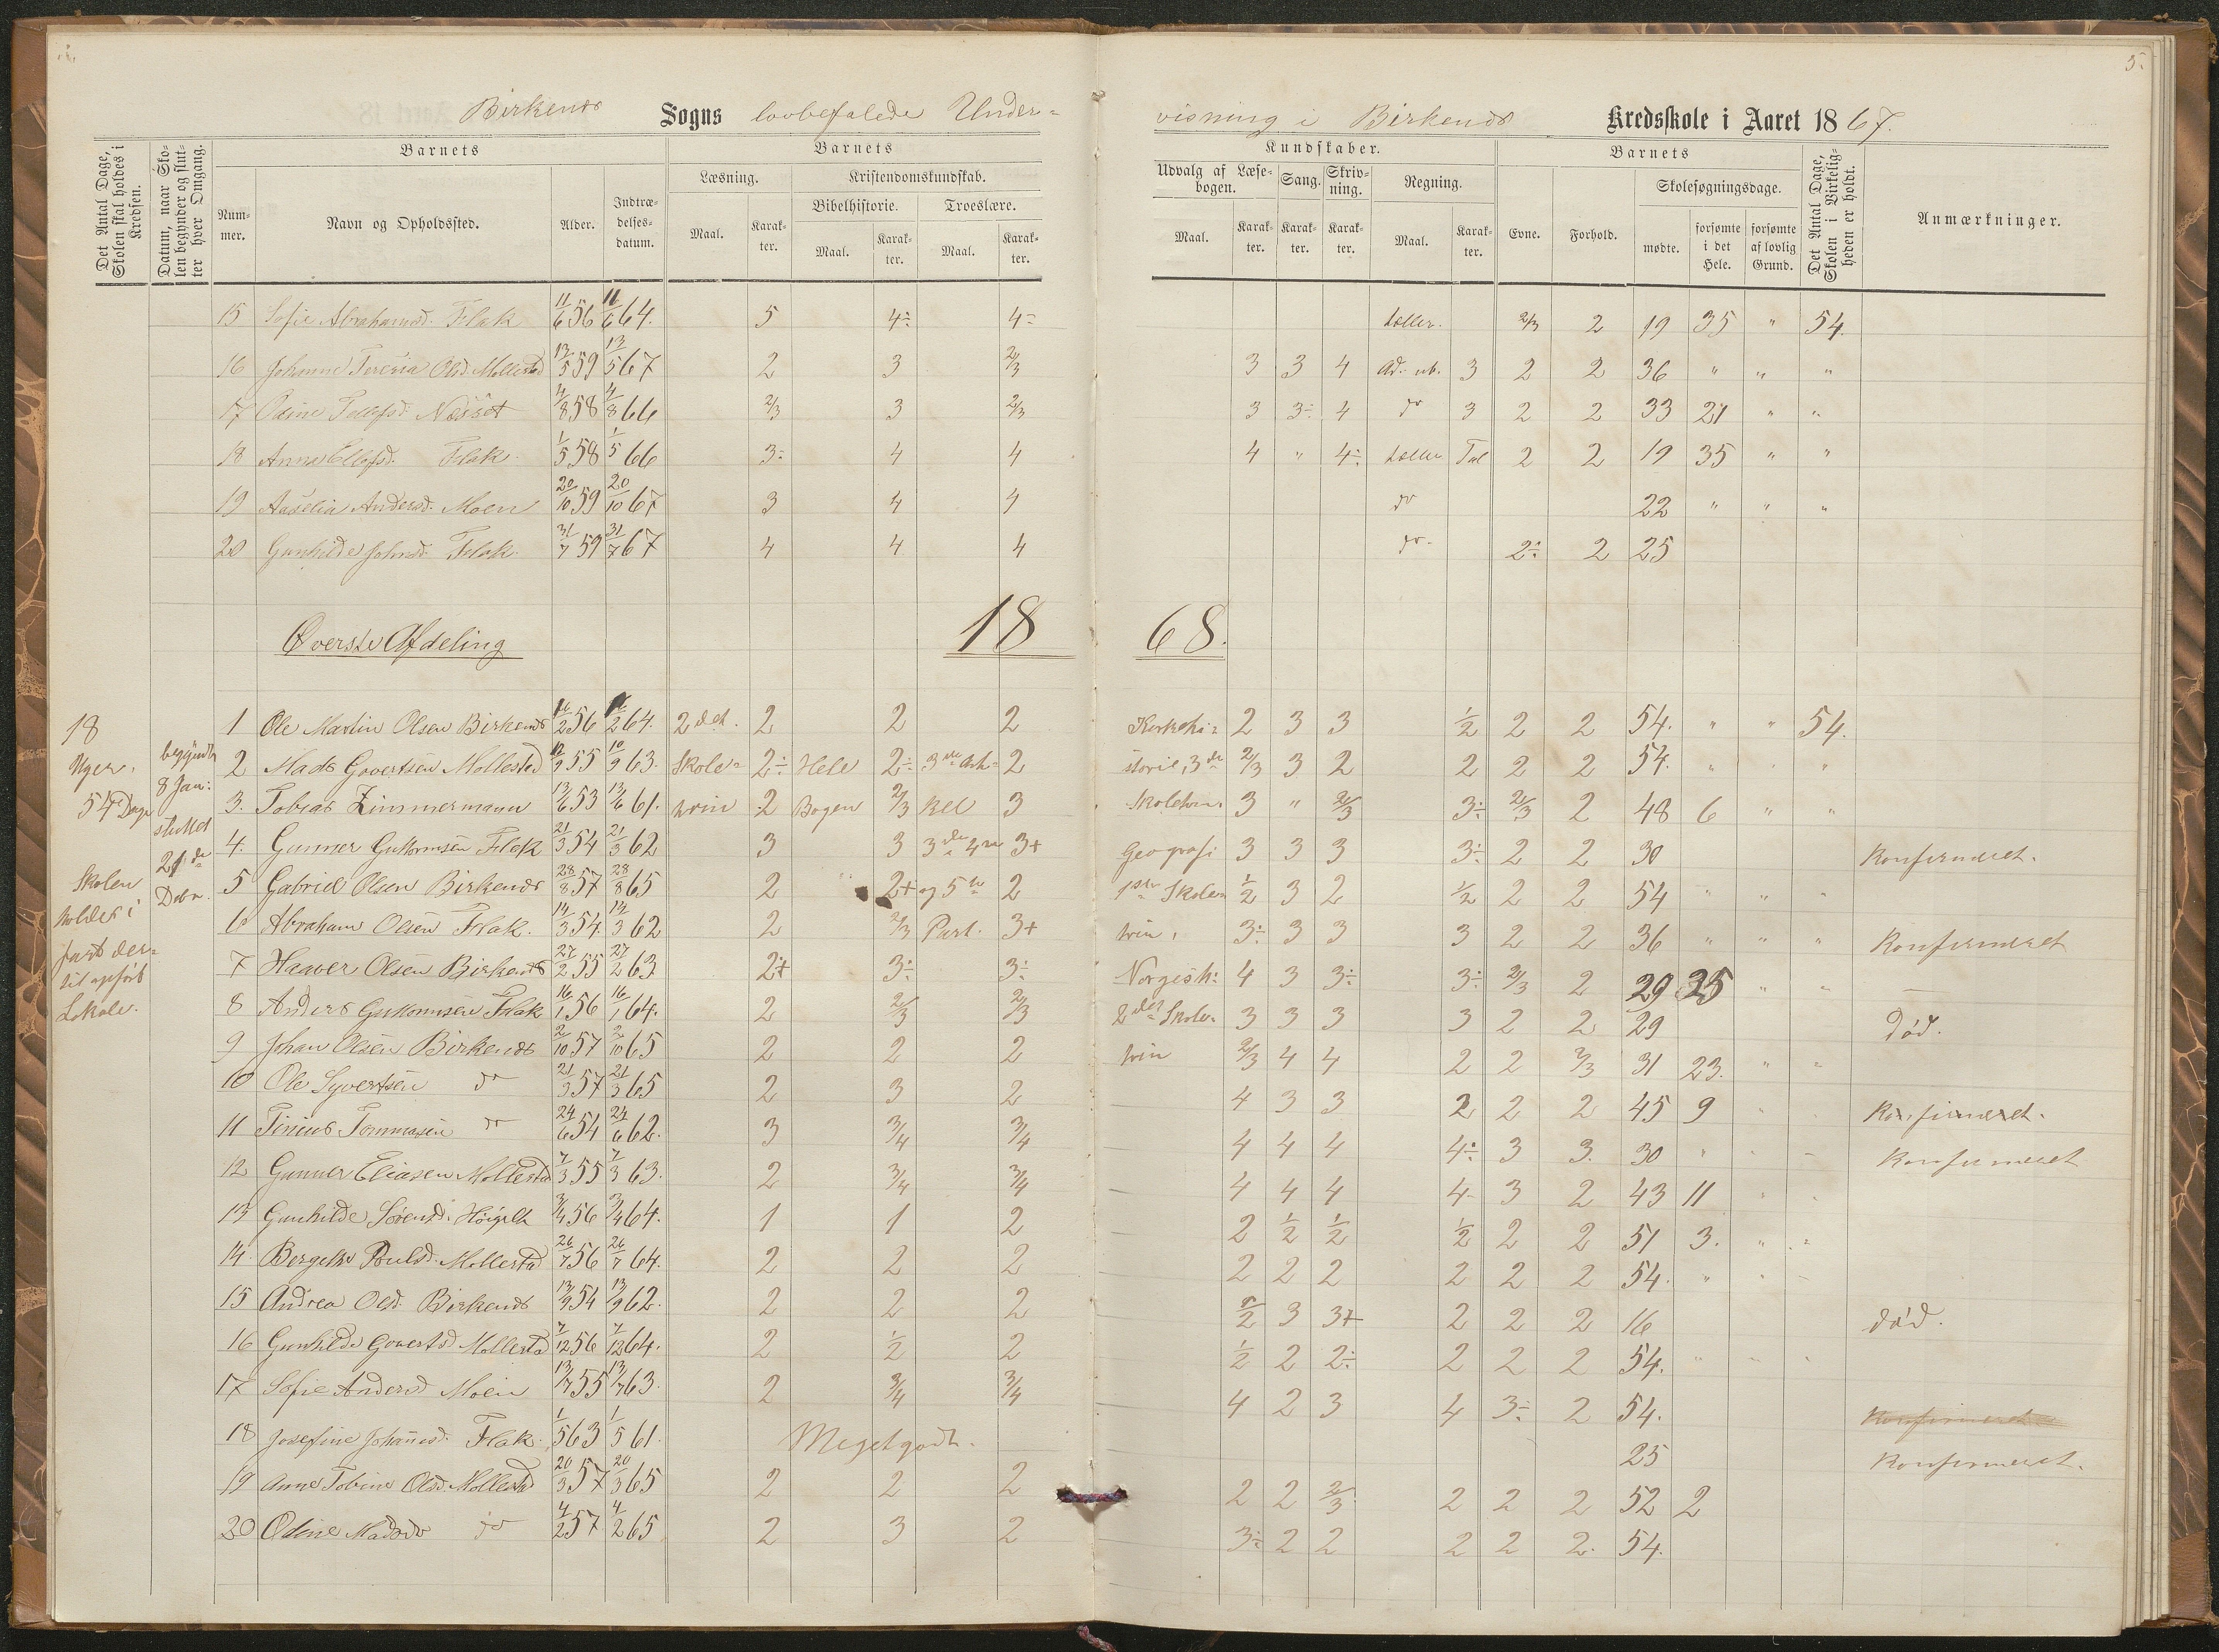 5.
Birkenes Sogns lovbefalede Under=
visning i Birkenes Kredsskole i Aaret 1867.
Det Antal Dage, Skolen skal holdes i Kredsen.
Datum, naar Skolen begynder og slutter hver Omgang.
Barnets
Nummer.
Navn og Opholdssted.
Alder.
Indtrædelsesdatum.
Barnets
Læsning.
Kristendomskundskab.
Bibelhistorie.
Troeslære.
Maal.
Karakter.
Maal.
Karakter.
Maal.
Karakter.
Kundskaber.
Udvalg af Læsebogen.
Sang.
Skrivning.
Regning.
Maal.
Karakter.
Karakter.
Karakter.
Maal.
Karakter.
Barnets
Evne.
Forhold.
Skolesøgningsdage.
mødte.
forsømte i det Hele.
forsømte af lovlig Grund.
Det Antal Dage, Skolen i Virkeligheden er holdt.
Anmærkninger.
15 Sofie Abrahamsd. Flak 11/6 56 11/6 64. 5 4÷ 4÷ tæller. 2/3 2 19 35 " 54.
16 Johanne Teresia Olsd. Mollestad 13/5 59 13/5 67 2 3 2/3 3 3 4 Ad. ub. 3 2 2 36 " " "
17 Tellefsd. 4/8 58 4/8 66 2/3 3 2/3 3 3÷ 4 do 3 2 2 33 21 " "
18 Anne Ellefsd. Flak 1/5 58 1/5 66 3÷ 4 4 4 " 4÷ tæller Tal 2 2 19 35 " "
19 Aaselia Andersd. Moen 20/10 59 20/10 67 3 4 4 do 22 " " "
20 Gunhilde Johnsd. Flak. 31/7 59 31/7 67 4 4 4 do 2÷ 2 25
Øverste Afdeling 18 68.
18 Uger. 54 Dage
begyndte 8 Jan: sluttet 21de Debr.
Skolen holdes i fast dertil opført Lokale.
1 Ole Martin Olsen Birkenes 16/2 56 16/2 64. 2det. 2 2 2 Kirkehi= 2 3 3 1/2 2 2 54. " " 54.
2 Mads Govertsen Mollestad 10/9 55 10/9 63. Skole= 2÷ Hele 2÷ 3die Arti= 2 storie, 3die 2/3 3 2 2 2 2 54. " " "
3. Tobias Zimmermann 13/6 53 13/6 61. trin 2 Bogen 2/3 kel 3 Skoletrin 3 " 2/3 3÷ 2/3 2 48 6 " "
4. Gunner Guttormsen Flak 21/3 54 21/3 62 3 3 3die 4de 3+ Geografi 3 3 3 3÷ 2 2 30 Konfirmeret.
5 Gabriel Olsen Birkenes 28/8 57 28/8 65 2 2+ og 5te 2 1ste Skole= 1/2 3 2 1/2 2 2 54 " " "
6 Abraham Olsen Flak. 14/3 54 14/3 62 2 2/3 Part. 3+ trin. 3÷ 3 3 3 2 2 36 " " " Konfirmeret
7 Haaver Olsen Birkenes 27/2 55 27/2 63 2+ 3÷ 3÷ Norgesh: 4 3 3÷ 3÷ 2/3 2 29 25 " "
8 Anders Guttormsen Flak 16/1 56 16/1 64. 2 2/3 2/3 2det Skole= 3 3 3 3 2 2 29 Død.
9 Johan Olsen Birkenes 2/10 57 2/10 65 2 2 2 trin 2/3 4 4 2 2 2/3 31 23. " "
10 Ole Syvertsen do 21/3 57 21/3 65 2 3 2 4 3 3 2 2 2 45 9 Konfirmeret.
11 Tinius Tommasen do 24/6 54 24/6 62. 3 3/4 3/4 4 4 4 4÷ 3 3. 30 " Konfirmeret
12 Gunner Eliasen Mollestad 7/3 55 7/3 63. 2 3/4 3/4 4 4 4 4- 3 2 43 11
13 Gunhilde Sørensd. 3/4 56 3/4 64. 1 1 2 2 1/2 1/2 1/2 2 2 51 3.
14. Bergethe Poulsd. Mollestad 26/7 56 26/7 64. 2 2 2 2 2 2 2 2 2 54.
15 Andrea Olsd. Birkenes 13/9 54 13/9 62. 2 2 2 1/2 3 3+ 2 2 2 16 død.
16 Gunhilde Govertsd Mollestad 7/12 56 7/12 64. 2 1/2 2 1/2 2 2÷ 2 2 2 54.
17 Sofie Andersd Moen 13/7 55 13/7 63. 2 3/4 3/4 4 2 3 4 3÷ 2 54. Konfirmeret
18 Josefine Johannesd. Flak. 1/5 63 1/5 61. Meget godt. 25 Konfirmeret.
19 Anne Tobine Olsd. Mollestad 20/3 57 20/3 65 2 2 2 2 2 2/3 2 2 2 52 2
20 Odine Madsdr do 4/2 57. 4/2 65 2 3 2 3÷ 2 2 2 2 2. 54.